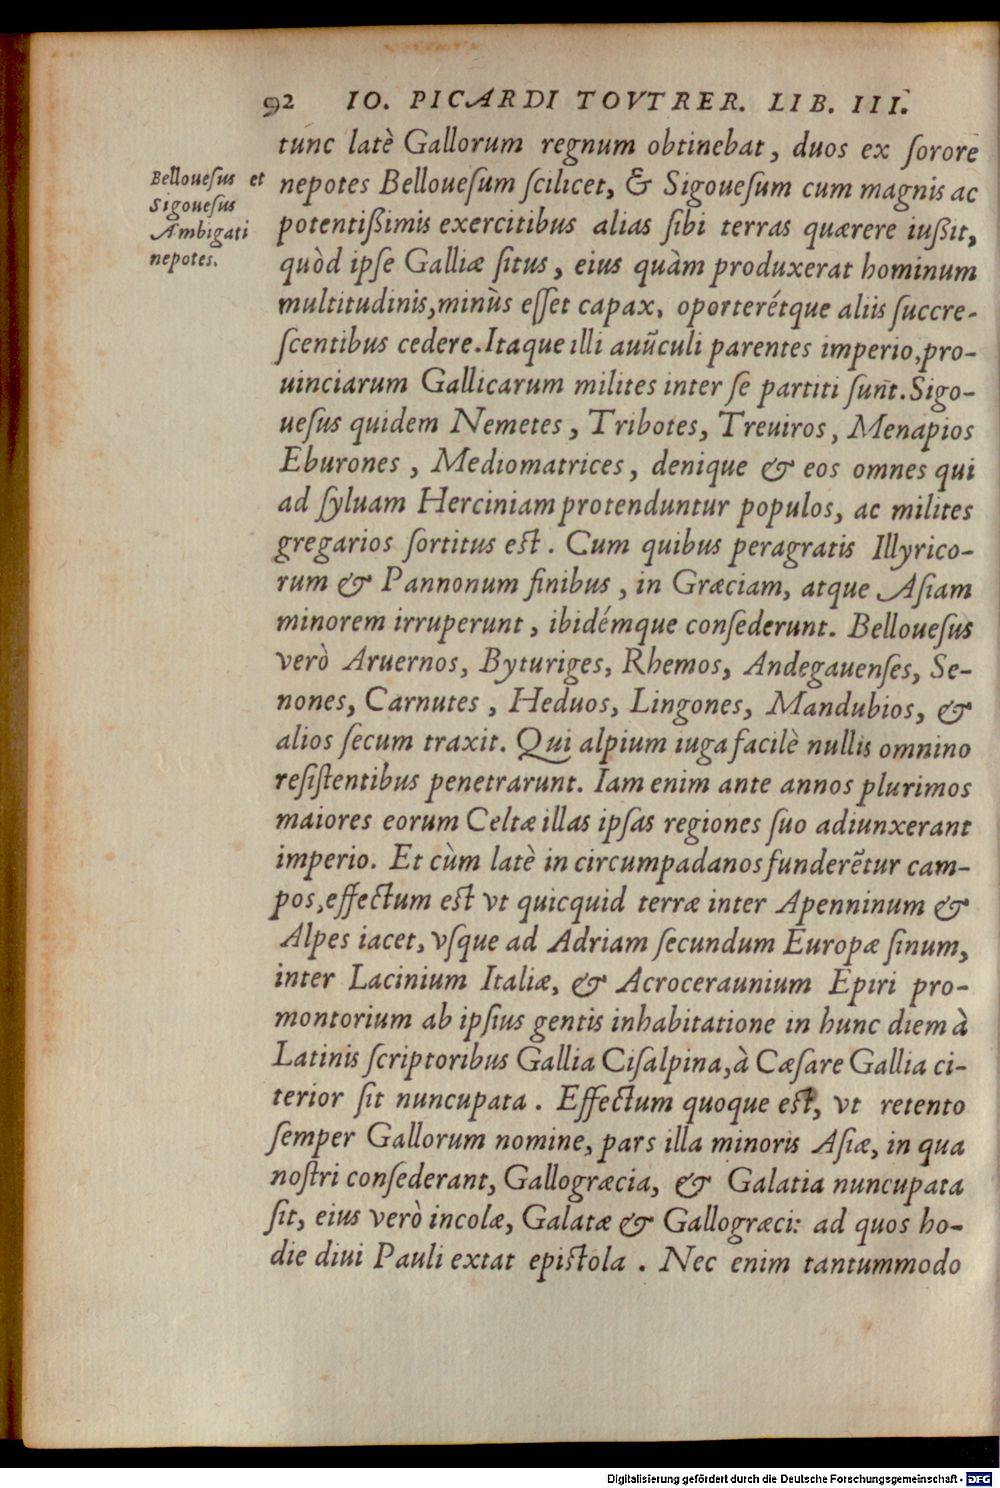 92 IO. PICARDI TOVTRER. LIB. III.
tunc latè Gallorum regnum obtinebat, duos ex ſorore
Belloueſus et
Sigoueſus
Ambigati
nepotes.
nepotes Belloueſum ſcilicet, & Sigoueſum cum magnis ac
potentißimis exercitibus alias ſibi terras quærere iußit,
quòd ipſe Galliæ ſitus, eius quàm produxerat hominum
multitudinis, minùs eſſet capax, oporterétque aliis ſuccre-
ſcentibus cedere. Itaque illi auũculi parentes imperio, pro-
uinciarum Gallicarum milites inter ſe partiti ſunt. Sigo-
ueſus quidem Nemetes, Tribotes, Treuiros, Menapios
Eburones, Mediomatrices, denique & eos omnes qui
ad ſyluam Herciniam protenduntur populos, ac milites
gregarios ſortitus est. Cum quibus peragratis Illyrico-
rum & Pannonum finibus, in Græciam, atque Aſiam
minorem irruperunt, ibidémque conſederunt. Belloueſus
verò Aruernos, Byturiges, Rhemos, Andegauenſes, Se-
nones, Carnutes, Heduos, Lingones, Mandubios, &
alios ſecum traxit. Qui alpium iuga facilè nullis omnino
reſiſtentibus penetrarunt. Iam enim ante annos plurimos
maiores eorum Celtæ illas ipſas regiones ſuo adiunxerant
imperio. Et cùm latè in circumpadanos funderẽtur cam-
pos, effectum est vt quicquid terræ inter Apenninum &
Alpes iacet, vſque ad Adriam ſecundum Europæ ſinum,
inter Lacinium Italiæ, & Acroceraunium Epiri pro-
montorium ab ipſius gentis inhabitatione in hunc diem à
Latinis ſcriptoribus Gallia Ciſalpina, à Cæſare Gallia ci-
terior ſit nuncupata. Effectum quoque est, vt retento
ſemper Gallorum nomine, pars illa minoris Aſiæ, in qua
noſtri conſederant, Gallogræcia, & Galatia nuncupata
ſit, eius verò incolæ, Galatæ & Gallogræci: ad quos ho-
die diui Pauli extat epistola. Nec enim tantummodo
Digitalisierung gefördert durch die Deutsche Forschungsgemeinschaft - DFG